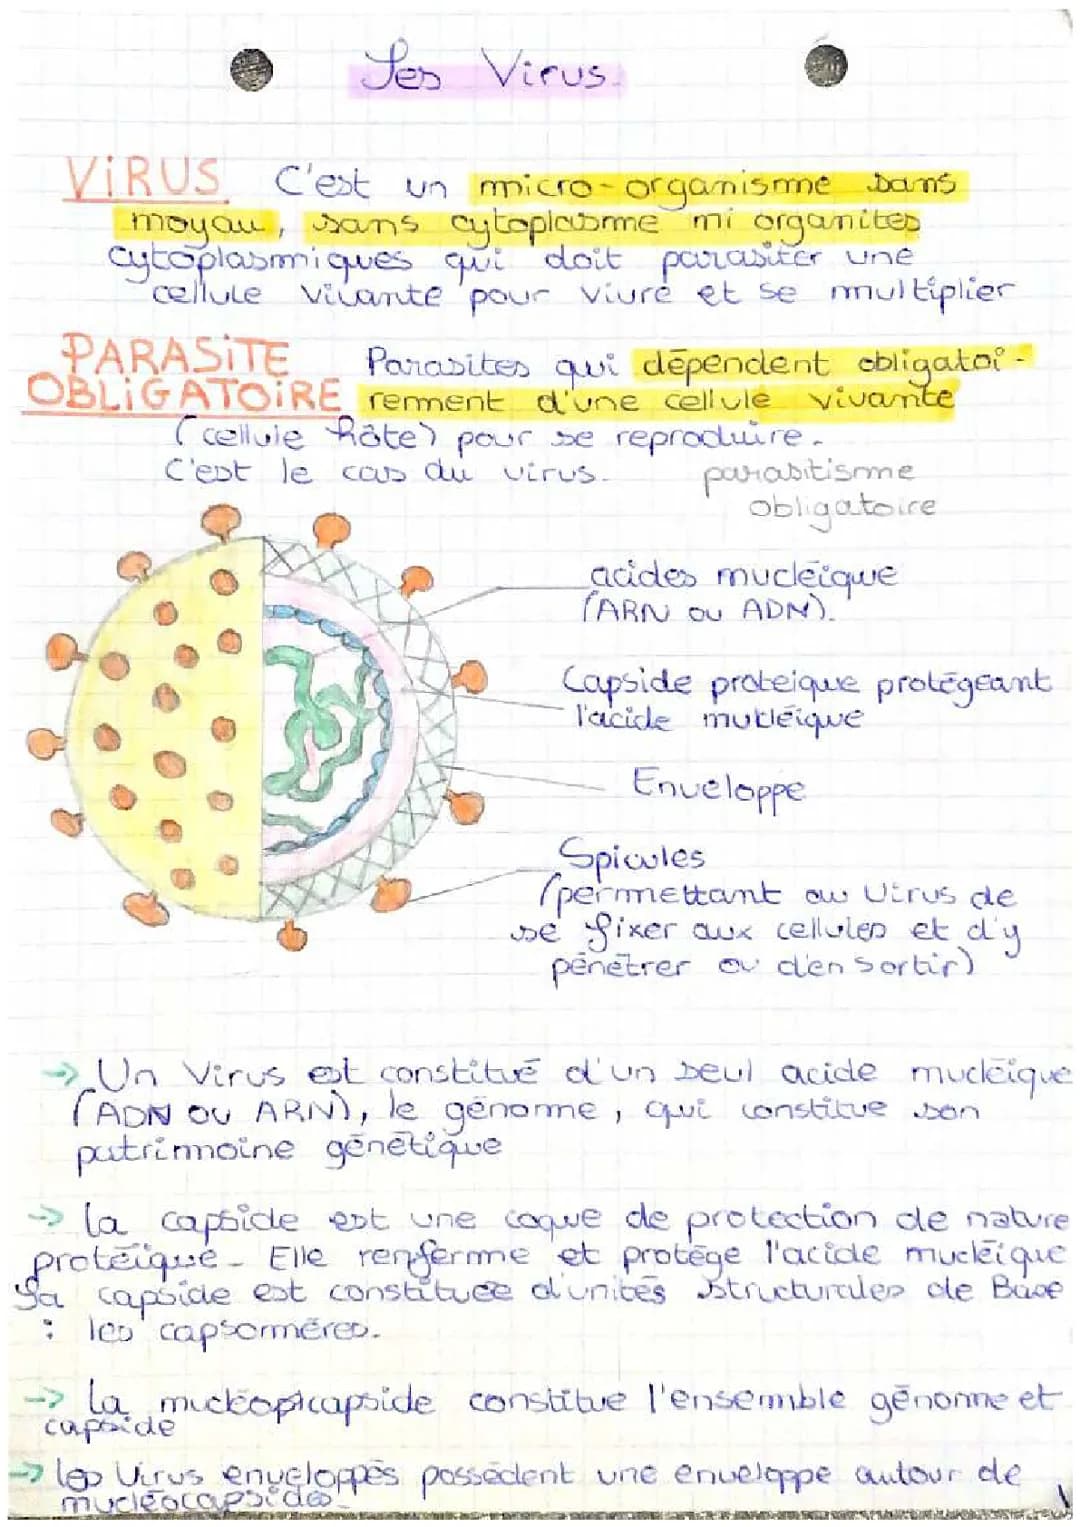 Les Virus.
VIRUS C'est un micro-organisme sans
noyau, sans cytoplasme ni organites
cytoplasmiques qui doit parasiter une
cellule vivante pour vivre et se multiplier
PARASITE
OBLIGATOIRE
Parasites qui dépendent obligatoi-
rement d'une cellule vivante
(cellule hôte) pour se reproduire.
C'est le cas du virus.
parasitisme
obligatoire
acides nucléique
(ARN ou ADN).
Capside proteique protégeant
l'acide nucléique
Enveloppe
Spicules
(permettant au virus de
se fixer aux cellules et d'y
pénétrer ou d'en sortir)
→ Un Virus est constitué d'un seul acide nucléique
(ADN ou ARN), le génome, qui constitue son
patrimoine génétique
→ la capside est une coque de protection de nature
protéique. Elle renferme et protège l'acide nucléique
La capside est constituée d'unités structurales de Base
: les capsomères.
→ La constitue l'ensemble génome et
capside
→ les Virus enveloppés possèdent une enveloppe autour de
nucléocapsides.
1